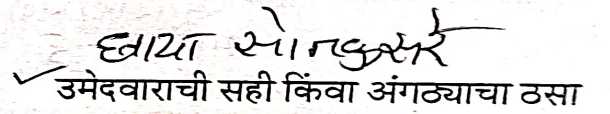 छाया सोनकुसरे
उमेदवाराची सही किंवा अंगठ्याचा ठसा